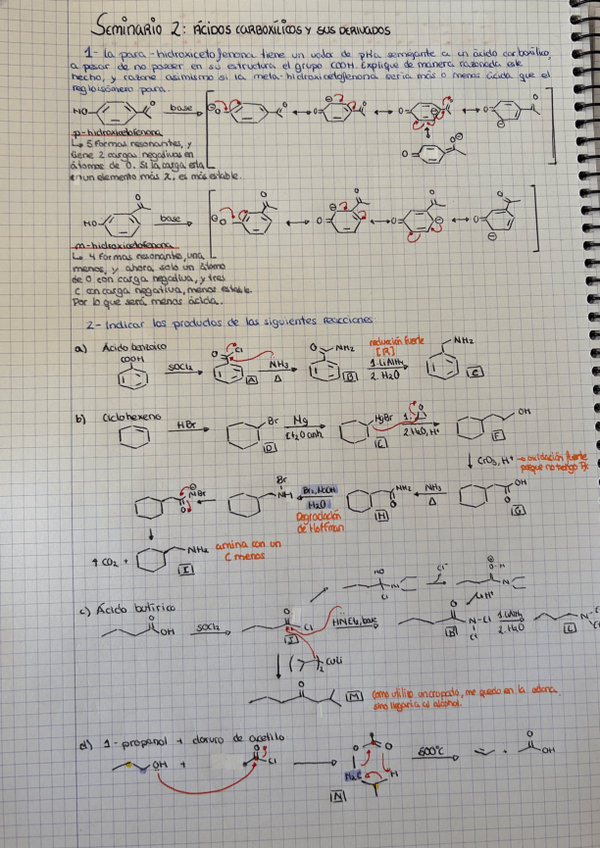 Seminario 2: ÁCIDOS CARBOXÍLICOS Y SUS DERIVADOS
1- La para-hidroxicetofenona tiene un valor de pKa semejante a un ácido carboxílico,
a pesar de no poseer en su estructura el grupo COOH. Explique de manera razonada este
hecho, y razone asimismo si la meta-hidroxicetofenona sería más o menos ácida que el
regioisómero para.
HO
base
p-hidroxicetofenona
↳ 5 formas resonantes, y
tiene 2 cargas negativas en
átomos de O. Si la carga esta
en un elemento más
es más estable.
HO
base
m-hidroxicetofenona
↳ 4 formas resonantes, una
menos, y ahora solo un átomo
de O con carga negativa, y tres
C con carga negativa, menos estable.
Por lo que será menos ácida.
2- Indicar los productos de las siguientes reacciones
a) Ácido benzoico
COOH
SOCl2
Cl
A
NH3
Δ
O
NH2
B
reducción fuerte
[R]
1. LiAlH4
2. H2O
NH2
C
b) Ciclohexeno
HBr
Br
D
Mg
Et2O anh.
MgBr
E
1.
2. H2O, H+
OH
F
CrO3, H+ → oxidación fuerte
porque no tengo
O
OH
G
NH3
Δ
O
NH2
H
Br2, NaOH
H2O
Degradación
de Hoffman
Br
NH
O
NBr
↑ CO2 +
NH2
I
amina con un
C menos
c) Ácido butírico
O
OH
SOCl2
O
Cl
HO
N
Cl
Cl-
N
-H+
base
O
N-Cl
Cl
K
1. LiAlH4
2. H2O
L
)2 CuLi
O
M
como utilizo un cuprato, me quedo en la cetona.
sino llegaría al alcohol.
d) 1-propanol + cloruro de acetilo
OH
+
O
Cl
O
O
H2C
H
N
500°C
+
O
OH